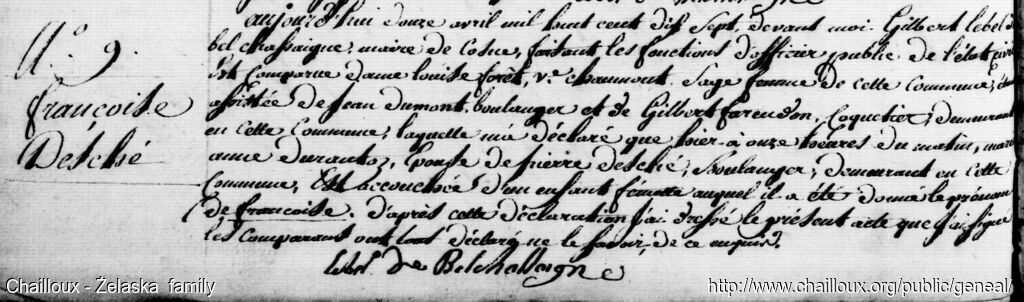 N.° 9.
françoise
Desché
aujourd'hui douze avril mil huit cent dix sept, devant moi Gilbert lebel de
bel chassaigne, maire de Cosne, faisant les fonctions d'officier public de l'état civil
Est Comparue dame louise forêt, v.e chaumont, Sage femme de cette Commune,
assistée de Jean dumont, boulanger et de Gilbert farendon, Coquetier, demeurant
en cette Commune, laquelle m'a déclaré que hier à onze heures du matin, marie
anne durantoz, Epouse de pierre desché, Boulanger, demeurant en cette
Commune, Est accouchée d'un enfant femelle auquel il a été donné le prénom
de françoise. d'après cette déclaration j'ai dressé le présent acte que j'ai signé
les Comparants ont tous déclaré ne le savoir de ce enquis.
lebel de Belchassaigne
Chailloux - Żelaska family
http://www.chailloux.org/public/geneal/